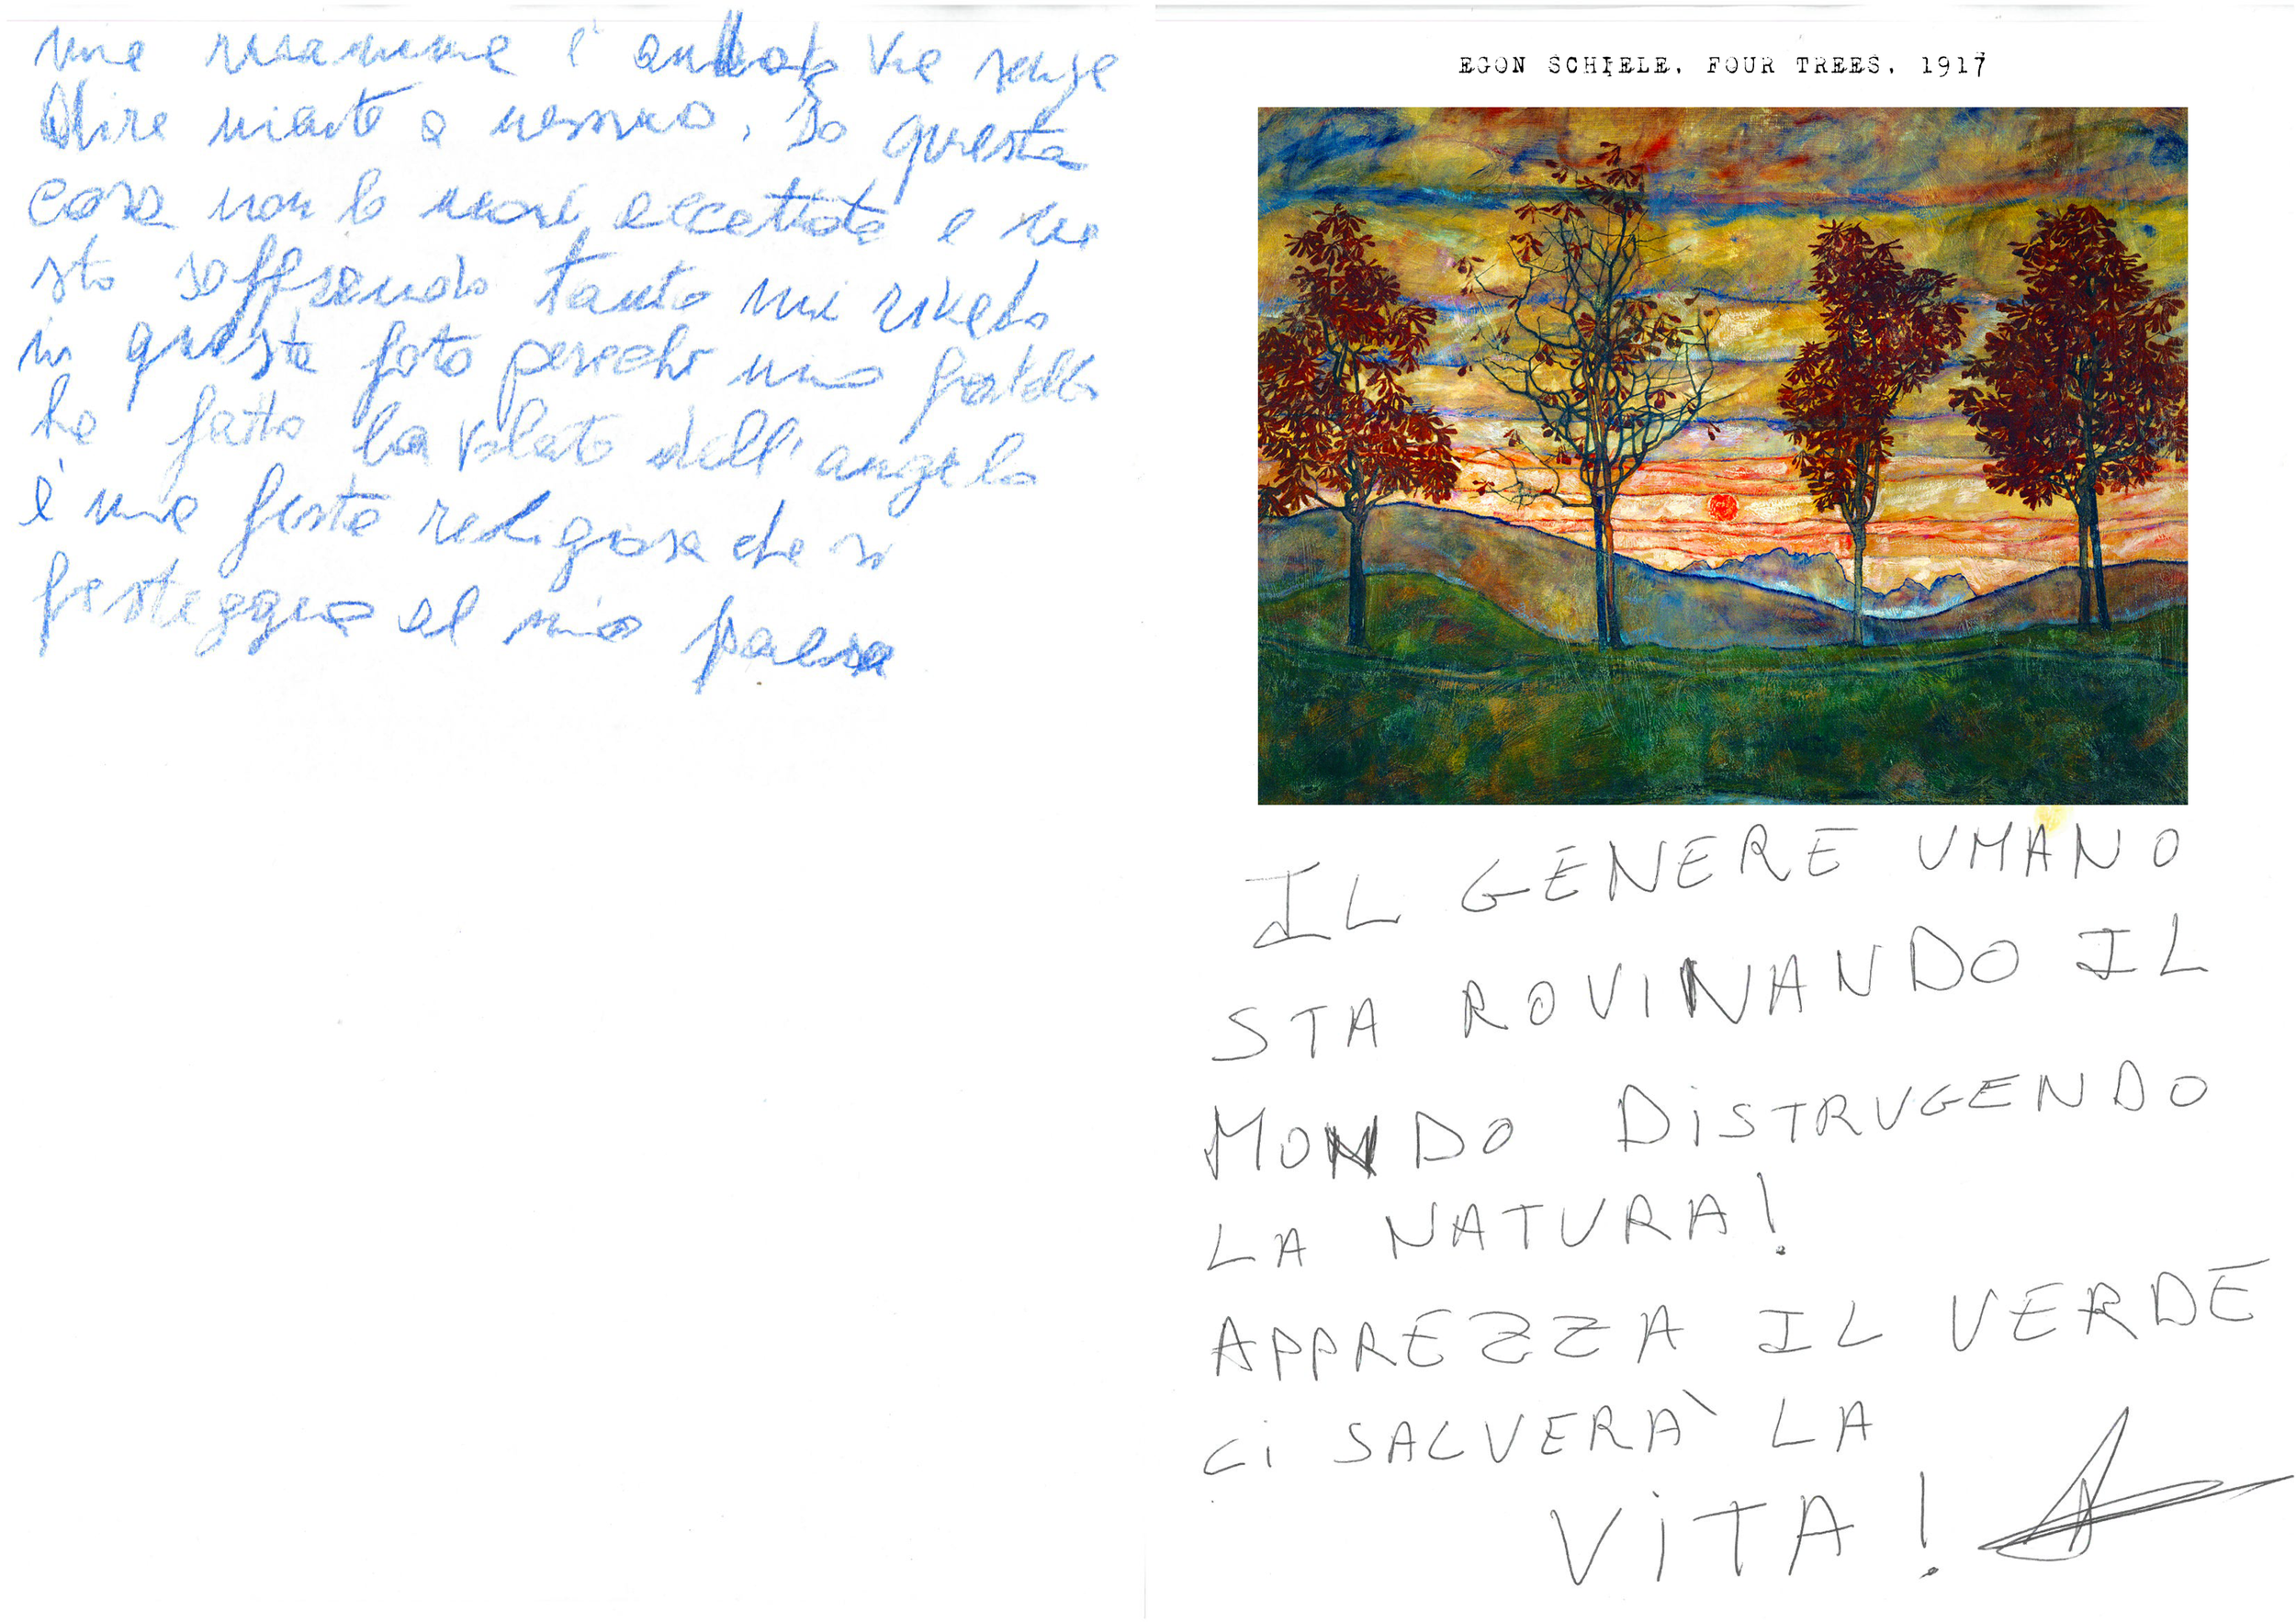 mia mamma è andata via senza
dire niente a nessuno. Io questa
cosa non lo mai accettata e ne
sto soffrendo tanto mi rivedo
in questa foto perché mio fratello
ha fatto la volata dell'angelo
è una festa religiosa che si
festeggia al mio paese
EGON SCHIELE, FOUR TREES, 1917
IL GENERE UMANO
STA ROVINANDO IL
MONDO DISTRUGENDO
LA NATURA!
APPREZZA IL VERDE
Ci SALVERÀ LA
ViTA!